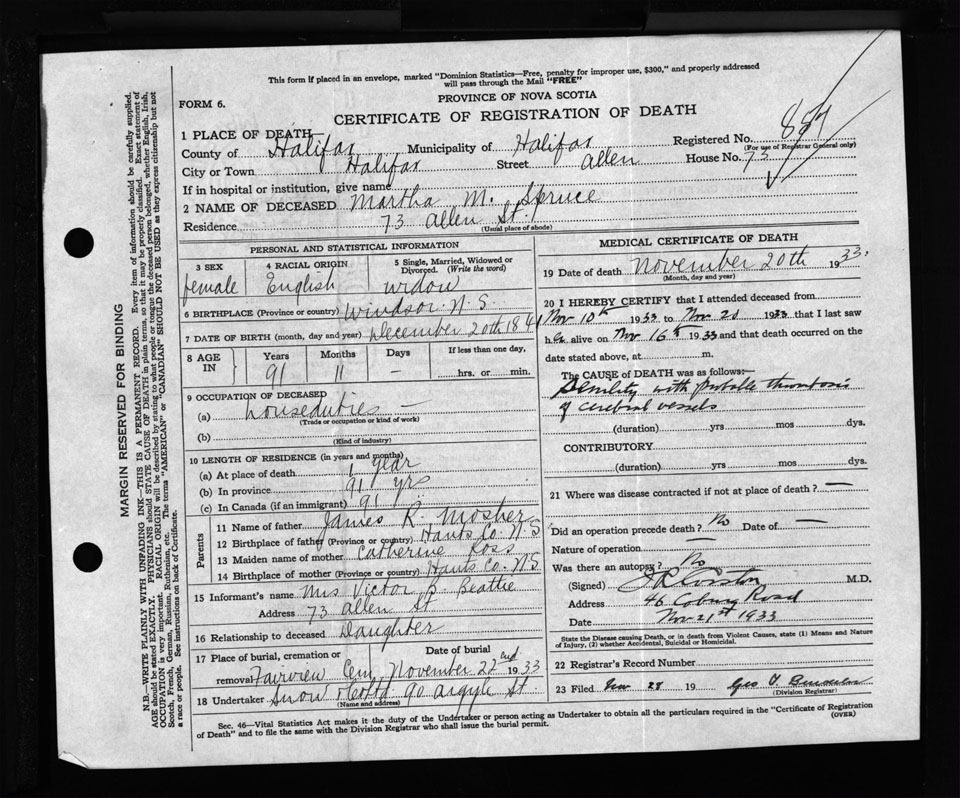 This form if placed in an envelope, marked "Dominion Statistics—Free, penalty for improper use, $300," and properly addressed
will pass through the Mail "FREE"
FORM 6.
PROVINCE OF NOVA SCOTIA
CERTIFICATE OF REGISTRATION OF DEATH
1 PLACE OF DEATH
County of Halifax Municipality of Halifax Registered No.
(For use of Registrar General only)
City or Town Halifax Street Allen House No. 73
If in hospital or institution, give name
2 NAME OF DECEASED Martha M. Spruce
Residence 73 Allen St.
(Usual place of abode)
PERSONAL AND STATISTICAL INFORMATION
3 SEX 4 RACIAL ORIGIN 5 Single, Married, Widowed or
Divorced. (Write the word)
female English widow
6 BIRTHPLACE (Province or country) Windsor N.S.
7 DATE OF BIRTH (month, day and year) December 20th 1841
8 AGE IN Years Months Days If less than one day,
91 11 — hrs. or min.
9 OCCUPATION OF DECEASED
(a) houseduties —
(Trade or occupation or kind of work)
(b)
(Kind of industry)
10 LENGTH OF RESIDENCE (in years and months)
(a) At place of death 1 year
(b) In province 91 yrs
(c) In Canada (if an immigrant) 91
Parents
11 Name of father James R. Mosher
12 Birthplace of father (Province or country) Hants Co. N.S
13 Maiden name of mother Catherine Ross
14 Birthplace of mother (Province or country) Hants Co. N.S.
15 Informant's name Mrs Victor B. Beattie
Address 73 Allen St
16 Relationship to deceased Daughter
17 Place of burial, cremation or Date of burial
removal Fairview Cem, November 22nd 1933
18 Undertaker Snow & Co Ltd 90 Argyle St.
(Name and address)
MEDICAL CERTIFICATE OF DEATH
19 Date of death November 20th 1933.
(Month, day and year)
20 I HEREBY CERTIFY that I attended deceased from
Nov 10th 1933 to Nov 20 1933 that I last saw
her alive on Nov 16th 1933 and that death occurred on the
date stated above, at m.
The CAUSE of DEATH was as follows:—
Senility with probable thrombosis
of cerebral vessels
(duration) yrs mos dys.
CONTRIBUTORY
(duration) yrs mos dys.
21 Where was disease contracted if not at place of death? —
Did an operation precede death? No Date of —
Nature of operation —
Was there an autopsy? No
(Signed) M.D.
Address 46 Coburg Road
Date Nov 21st 1933
State the Disease causing Death, or in death from Violent Causes, state (1) Means and Nature
of Injury, (2) whether Accidental, Suicidal or Homicidal.
22 Registrar's Record Number
23 Filed Nov 28 19 Geo
(Division Registrar)
Sec. 46—Vital Statistics Act makes it the duty of the Undertaker or person acting as Undertaker to obtain all the particulars required in the "Certificate of Registration
of Death" and to file the same with the Division Registrar who shall issue the burial permit. (OVER)
MARGIN RESERVED FOR BINDING
N.B.—WRITE PLAINLY WITH UNFADING INK—THIS IS A PERMANENT RECORD. Every item of information should be carefully supplied.
AGE should be stated EXACTLY. PHYSICIANS should STATE CAUSE OF DEATH in plain terms, so that it may be properly classified. Exact statement of
OCCUPATION is very important. RACIAL ORIGIN will be described by stating to what people or tongue the deceased person belonged, whether English, Irish,
Scotch, French, German, Russian, Ruthenian, etc. The terms "AMERICAN" or "CANADIAN" SHOULD NOT BE USED as they express citizenship but not
a race or people. See instructions on back of Certificate.